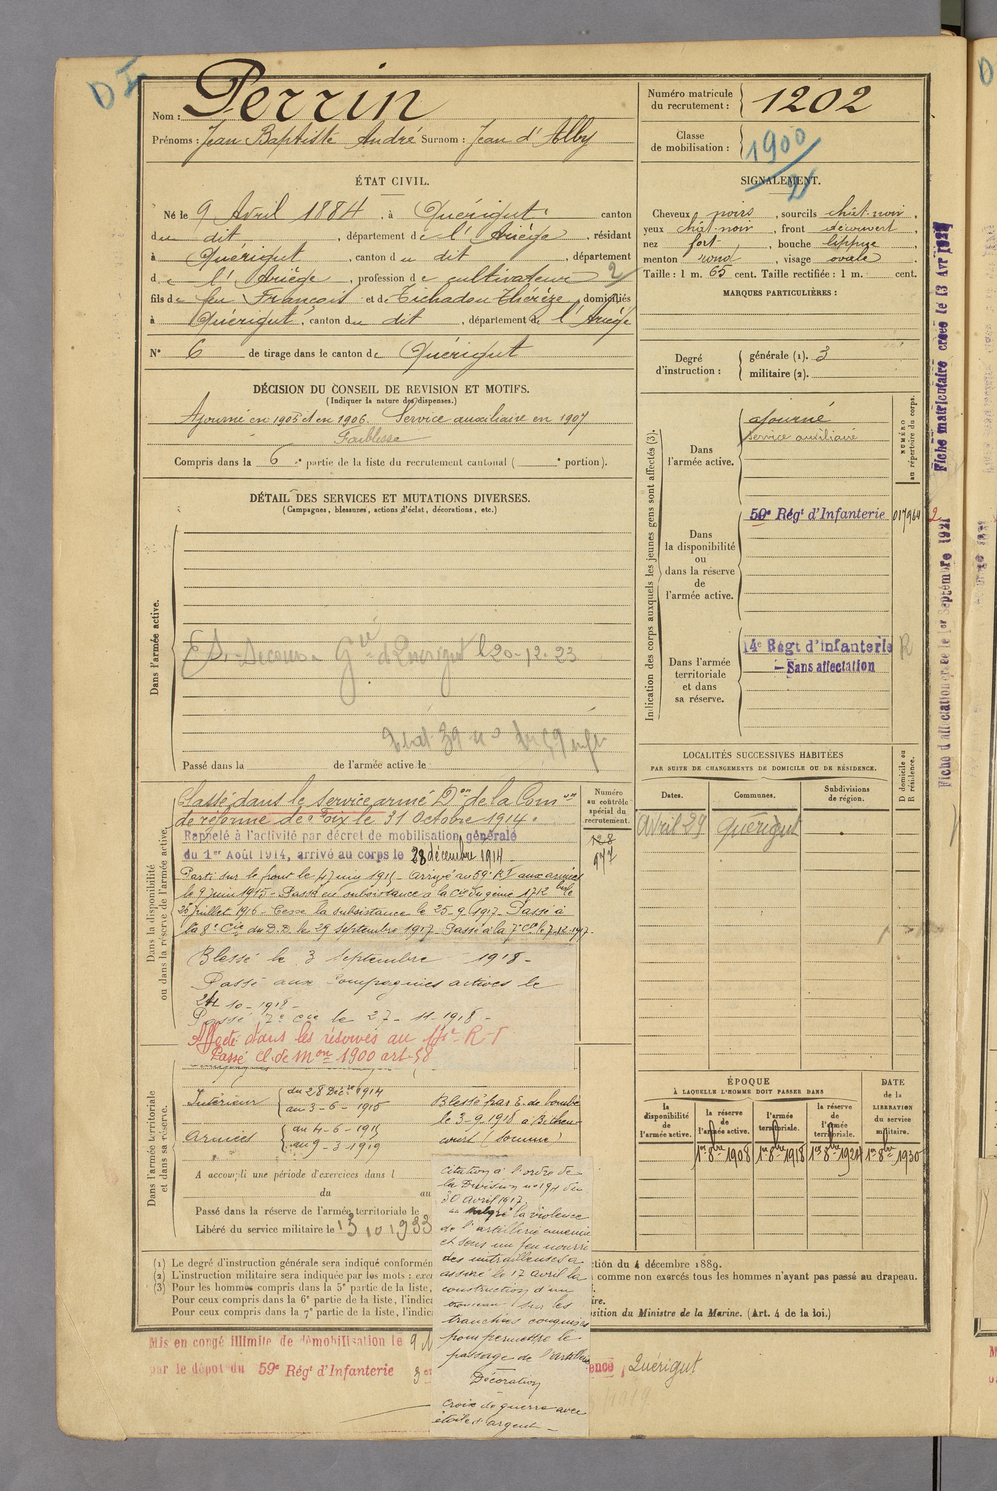 D I
Nom : Perrin
Prénoms : Jean Baptiste André Surnom : Jean d'Alby
Numéro matricule du recrutement : 1202
Classe de mobilisation : 1900
ÉTAT CIVIL.
Né le 9 Avril 1884, à Quérigut, canton
du dit, département de l'Ariège, résidant
à Quérigut, canton du dit, département
d e l'Ariège, profession de cultivateur 2
fils de feu François et de Tichadou Thérèze, domiciliés
à Quérigut, canton du dit, département de l'Ariège
N° 6 de tirage dans le canton de Quérigut
SIGNALEMENT.
Cheveux noirs, sourcils chât-noir,
yeux chât-noir, front découvert,
nez fort, bouche lippue,
menton rond, visage ovale
Taille : 1 m. 65 cent. Taille rectifiée : 1 m. cent.
MARQUES PARTICULIÈRES :
Degré d'instruction : générale (1). 3
militaire (2).
DÉCISION DU CONSEIL DE REVISION ET MOTIFS.
(Indiquer la nature des dispenses.)
Ajourné en 1905 et en 1906. Service auxiliaire en 1907
Faiblesse
Compris dans la 6e partie de la liste du recrutement cantonal ( e portion).
DÉTAIL DES SERVICES ET MUTATIONS DIVERSES.
(Campagnes, blessures, actions d'éclat, décorations, etc.)
Dans l'armée active.
d'Quérigut le 20-12-23
Passé dans la de l'armée active le
Indication des corps auxquels les jeunes gens sont affectés (3).
NUMÉRO au répertoire du corps.
Dans l'armée active.
ajourné
service auxiliaire
Dans la disponibilité ou dans la réserve de l'armée active.
59e Régt d'Infanterie 017964
Dans l'armée territoriale et dans sa réserve.
14e Régt d'Infanterie R
— Sans affectation
Fiche matriculaire créée le 13 Avr 1921
Fiche d'affectation créée le 1er Septembre 1921
LOCALITÉS SUCCESSIVES HABITÉES
PAR SUITE DE CHANGEMENTS DE DOMICILE OU DE RÉSIDENCE.
Dates. Communes. Subdivisions de région.
D domicile ou R résidence.
Avril 29 Quérigut
Dans la disponibilité ou dans la réserve de l'armée active.
Numéro au contrôle spécial du recrutement.
128
977
Classé dans le service armé Don de la Comon
de réforme de Foix le 31 Octobre 1914.
Rappelé à l'activité par décret de mobilisation générale
du 1er Août 1914, arrivé au corps le 28 décembre 1914 -
Parti sur le front le 27 mai 1915 - arrivé au 59e R.I. aux armées
le 9 juin 1915 - Passé en subsistance à la Cie du génie 17/2 bis le
25 juillet 1916 - Cesse la subsistance le 25-9-1917 - Passé à
la 8e Cie du D.D. le 29 septembre 1917 - Passé à la 7e Cie le 7.12.1917.
Blessé le 3 Septembre 1918 -
Passé aux Compagnies actives le
24-10-1918 -
Passé 7e Cie le 27-11-1918 -
Affecté dans les réserves au R-I
Passé Cl. de Mon 1900 art. 58
Dans l'armée territoriale et dans sa réserve.
Intérieur du 28 Décbre 1914
au 3-6-1915
Armées du 4-6-1915
au 9-3-1919
Blessé par E. de bombe
le 3-9-1918 à Béthencourt (Somme)
A accompli une période d'exercices dans l
du au
Passé dans la réserve de l'armée territoriale le
Libéré du service militaire le 15 10 1933
Citation à l'ordre de
la Division n° 194 du
30 Avril 1917
« Malgré la violence
de l'artillerie ennemie
et sous un feu nourri
des mitrailleuses a
assuré le 17 avril la
construction d'un
sur les
tranchées conquises
pour permettre le
passage de l'artillerie
Décoration
Croix de guerre avec
étoile d'argent -
ÉPOQUE
À LAQUELLE L'HOMME DOIT PASSER DANS
la disponibilité de l'armée active.
la réserve de l'armée active.
l'armée territoriale.
la réserve de l'armée territoriale.
DATE de la LIBÉRATION du service militaire.
1er 8bre 1908 1er 8bre 1918 1er 8bre 1924 1er 8bre 1930
(1) Le degré d'instruction générale sera indiqué conformén ction du 4 décembre 1889.
(2) L'instruction militaire sera indiquée par les mots : exer comme non exercés tous les hommes n'ayant pas passé au drapeau.
(3) Pour les hommes compris dans la 5e partie de la liste,
Pour ceux compris dans la 6e partie de la liste, l'indica ire.
Pour ceux compris dans la 7e partie de la liste, l'indica sition du Ministre de la Marine. (Art. 4 de la loi.)
Mis en congé illimité de démobilisation le 9
par le dépôt du 59e Régt d'Infanterie 3e ence, Quérigut